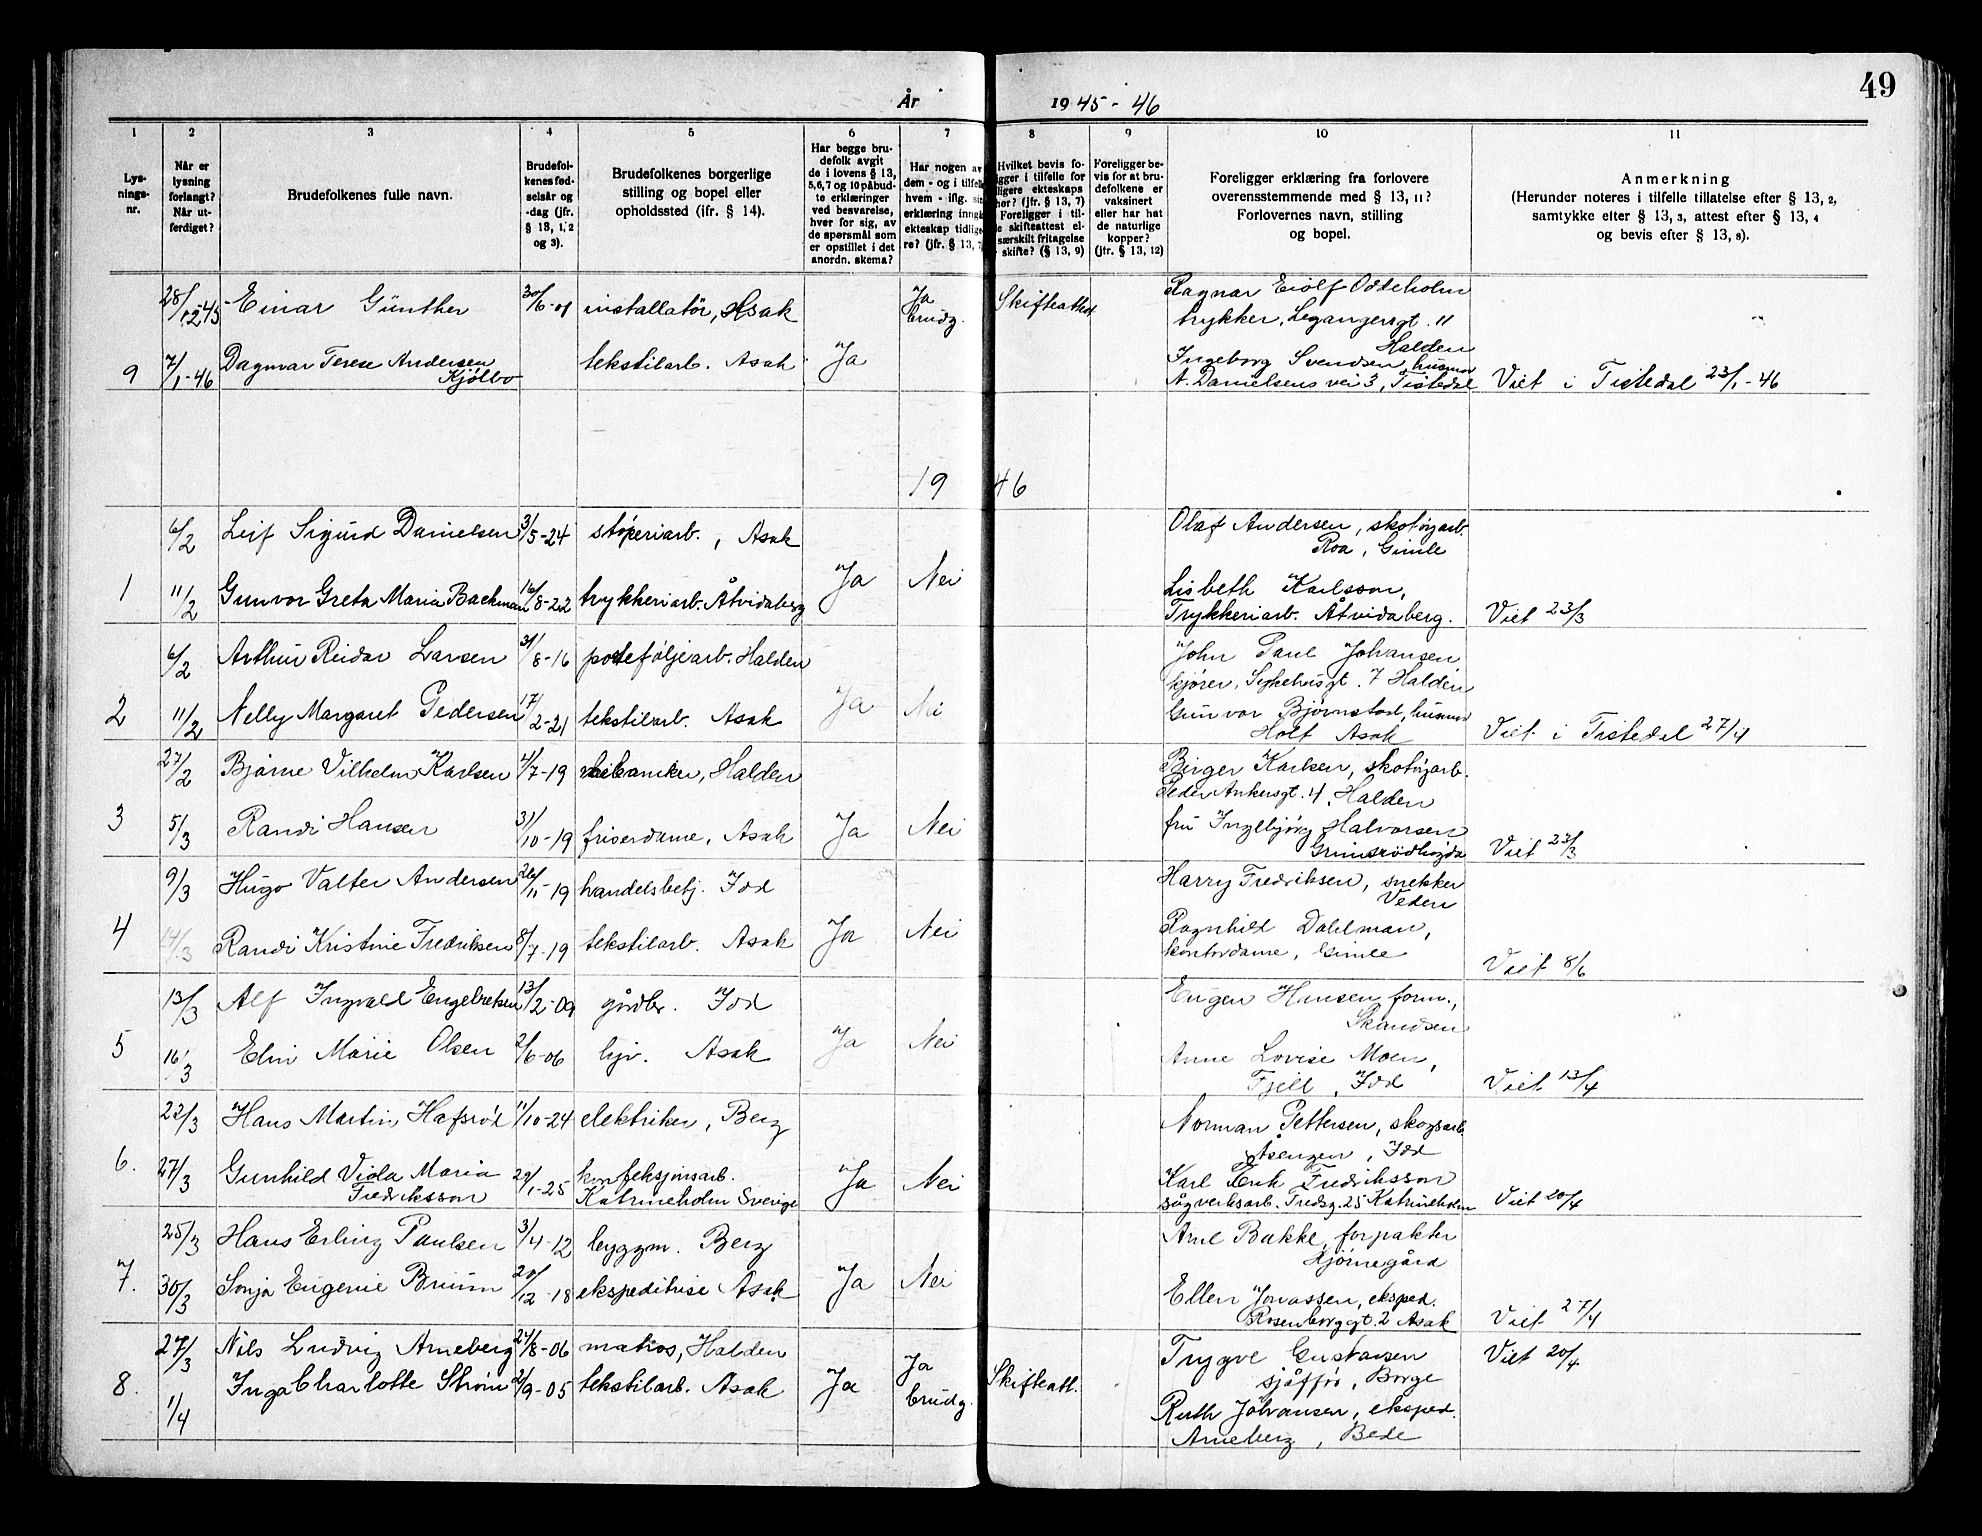 49
År 1945-46
1 2 3 4 5 6 7 8 9 10 11
Lys-
nings-
nr.
Når er
lysning
forlangt?
Når ut-
ferdiget?
Brudefolkenes fulle navn.
Brudefol-
kenes fød-
selsår og
-dag (jfr.
§ 13, 1, 2
og 3).
Brudefolkenes borgerlige
stilling og bopel eller
opholdssted (jfr. § 14).
Har begge bru-
defolk avgit
de i lovens § 13,
5,6,7 og 10 påbud-
te erklæringer
ved besvarelse,
hver for sig, av
de spørsmål som
er opstillet i det
anordn. skema?
Har nogen av
dem - og i tilfelle
hvem - iflg. sin
erklæring inngå
ekteskap tidlige
re? (jfr. § 13, 7
Hvilket bevis fo-
ligger i tilfelle for
ligere ekteskaps
hør? (jfr. § 13, 7)
Foreligger i til-
e skifteattest el-
særskilt fritagelse
skifte? (§ 13, 9)
Foreligger be-
vis for at bru-
defolkene er
vaksinert
eller har hat
de naturlige
kopper?
(jfr. § 13, 12)
Foreligger erklæring fra forlovere
overensstemmende med § 13, 11?
Forlovernes navn, stilling
og bopel.
Anmerkning
(Herunder noteres i tilfelle tillatelse efter § 13, 2,
samtykke efter § 13, 3, attest efter § 13, 4
og bevis efter § 13, 8).
28/12-45 Einar Günther 30/6-01 installatør, Asak Ja brudg. Skifteattest Ragnar Eiolf Oddeholm
trykker, Legangersgt. 11
Halden
9 7/1-46 Dagmar Terese Andersen
Kjølbo tekstilarb. Asak Ja Ingeborg Svendsen, husmor
A. Danielsens vei 3, Tistedal Viet i Tistedal 23/1-46
1946
6/2 Leif Sigurd Danielsen 3/5-24 støperiarb., Asak Olaf Andersen, skotøyarb.
Roa, Gimle
1 11/2 Gunvor Greta Maria Backman 16/8-22 trykkeriarb. Åtvidaberg Ja Nei Lisbeth Karlsson,
Trykkeriarb. Åtvidaberg. Viet 23/3
6/2 Arthur Reidar Larsen 31/8-16 porteføljearb. Halden John Paul Johansen
kjører, Sykehusgt. 7 Halden
2 11/2 Nelly Margaret Pedersen 17/2-21 tekstilarb. Asak Ja Nei Gunvor Bjørnstad, husmor
Holt Asak Viet i Tistedal 27/4
27/2 Bjarne Vilhelm Karlsen 4/7-19 mekaniker, Halden Birger Karlsen, skotøyarb.
Peder Ankersgt. 4, Halden
3 5/3 Randi Hansen 31/10-19 friserdame, Asak Ja Nei fru Ingebjørg Halvorsen
Grimsrødhøgda Viet 23/3
9/3 Hugo Valter Andersen 26/11-19 handelsbetj. Idd Harry Fredriksen, snekker
Veden
4 14/3 Randi Kristine Fredriksen 8/7-19 tekstilarb. Asak Ja Nei Ragnhild Dahlman,
kontordame, Gimle Viet 8/6
13/3 Alf Ingvald Engebretsen 13/2-09 gårdbr. Idd Eugen Hansen, form.,
Skandsen
5 16/3 Elin Marie Olsen 2/6-06 hjv. Asak Ja Nei Anne Lovise Moen,
Fjell, Idd Viet 13/4
23/3 Hans Martin Hafsröd 11/10-24 elektriker, Berg Norman Pettersen, skogsarb.
Åsengen, Idd
6. 27/3 Gunhild Viola Maria
Fredriksson 29/1-25 konfeksjonsarb.
Katrineholm Sverige Ja Nei Karl Erik Fredriksson
sågverksarb. Fredsg. 25 Katrineholm Viet 20/4
25/3 Hans Erling Paulsen 3/4-12 byggm. Berg Arne Bakke, forpakter
Hjørnegård
7. 30/3 Sonja Eugenie Bruun 20/12-18 ekspeditrise Asak Ja Nei Ellen Jonassen, eksped.
Rosenborggt. 2 Asak Viet 27/4
27/3 Nils Ludvig Arneberg 24/8-06 matros, Halden Trygve Gustavsen
sjåffør, Borge Viet 20/4
8. 1/4 Inga Charlotte Strøm 2/9-05 tekstilarb. Asak Ja Ja brudg. Skifteatt. Ruth Johansen, eksped.
Arneberg, Bede